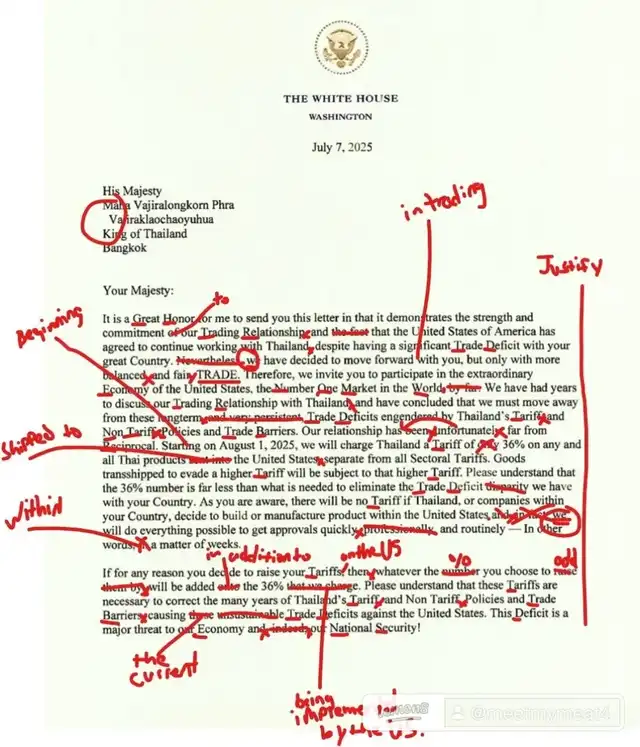 THE WHITE HOUSE
WASHINGTON
July 7, 2025
His Majesty
Maha Vajiralongkorn Phra
Vajiraklaochaoyuhua
King of Thailand
Bangkok
in trading
Justify
Your Majesty:
to
Beginning
It is a Great Honor for me to send you this letter in that it demonstrates the strength and
commitment of our Trading Relationship and the fact that the United States of America has
agreed to continue working with Thailand, despite having a significant Trade Deficit with your
great Country. Nevertheless, we have decided to move forward with you, but only with more
balanced, and fair, TRADE. Therefore, we invite you to participate in the extraordinary
Economy of the United States, the Number One Market in the World, by far. We have had years
to discuss our Trading Relationship with Thailand, and have concluded that we must move away
from these longterm, and very persistent, Trade Deficits engendered by Thailand's Tariff, and
Non Tariff, Policies and Trade Barriers. Our relationship has been, unfortunately, far from
Reciprocal. Starting on August 1, 2025, we will charge Thailand a Tariff of only 36% on any and
shipped to
all Thai products sent into the United States, separate from all Sectoral Tariffs. Goods
transshipped to evade a higher Tariff will be subject to that higher Tariff. Please understand that
the 36% number is far less than what is needed to eliminate the Trade Deficit disparity we have
with your Country. As you are aware, there will be no Tariff if Thailand, or companies within
within
your Country, decide to build or manufacture product within the United States and, in fact, we
will do everything possible to get approvals quickly, professionally, and routinely — In other
words, in a matter of weeks.
in addition to
on the US
%
add
If for any reason you decide to raise your Tariffs, then, whatever the number you choose to raise
them by, will be added onto the 36% that we charge. Please understand that these Tariffs are
necessary to correct the many years of Thailand's Tariff, and Non Tariff, Policies and Trade
Barriers, causing these unsustainable Trade Deficits against the United States. This Deficit is a
major threat to our Economy and, indeed, our National Security!
the
current
being
implemented
by the US.
@meetmymeat4